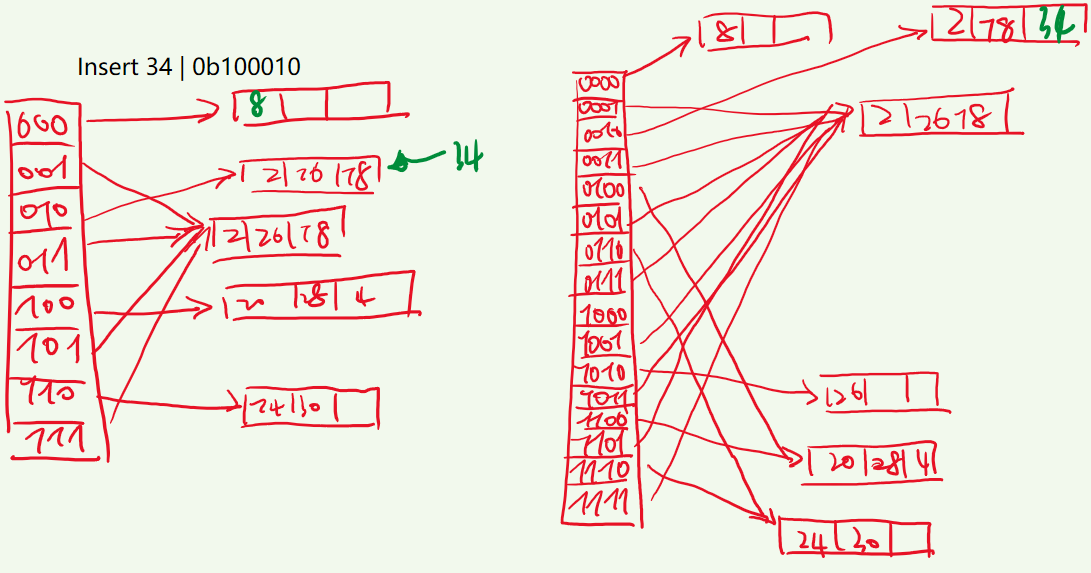 Insert 34 | 0b100010
000
001
010
011
100
101
110
111
8
2 26 78
34
2 26 78
20 28 4
24 30
0000
0001
0010
0011
0100
0101
0110
0111
1000
1001
1010
1011
1100
1101
1110
1111
8
2 78 34
2 26 78
26
20 28 4
24 30